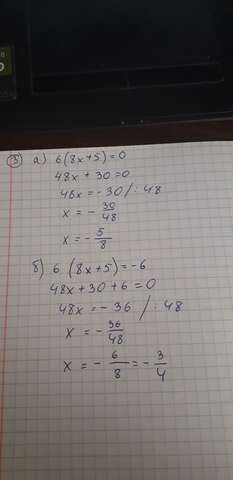 3) а) 6(8x+5)=0
48x+30=0
48x=-30/:48
x=-30/48
x=-5/8
б) 6(8x+5)=-6
48x+30+6=0
48x=-36/:48
x=-36/48
x=-6/8=-3/4